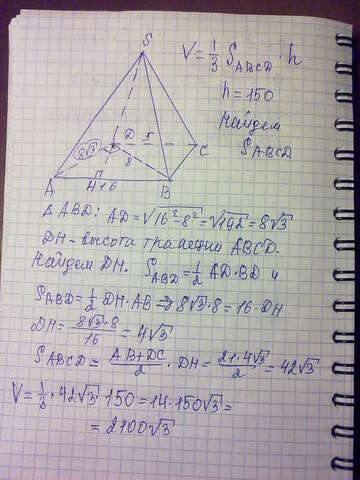 S
V = 1/3 S_ABCD · h
h = 150
Найдем
S_ABCD
8√3
D
5
C
8
A
H
16
B
△ ABD: AD = √(16² - 8²) = √192 = 8√3
DH - высота трапеции ABCD.
Найдем DH. S_ABD = 1/2 AD · BD и
S_ABD = 1/2 DH · AB ⇒ 8√3 · 8 = 16 · DH
DH = (8√3 · 8)/16 = 4√3
S_ABCD = (AB + DC)/2 · DH = (21 · 4√3)/2 = 42√3
V = 1/3 · 42√3 · 150 = 14 · 150√3 =
= 2100√3